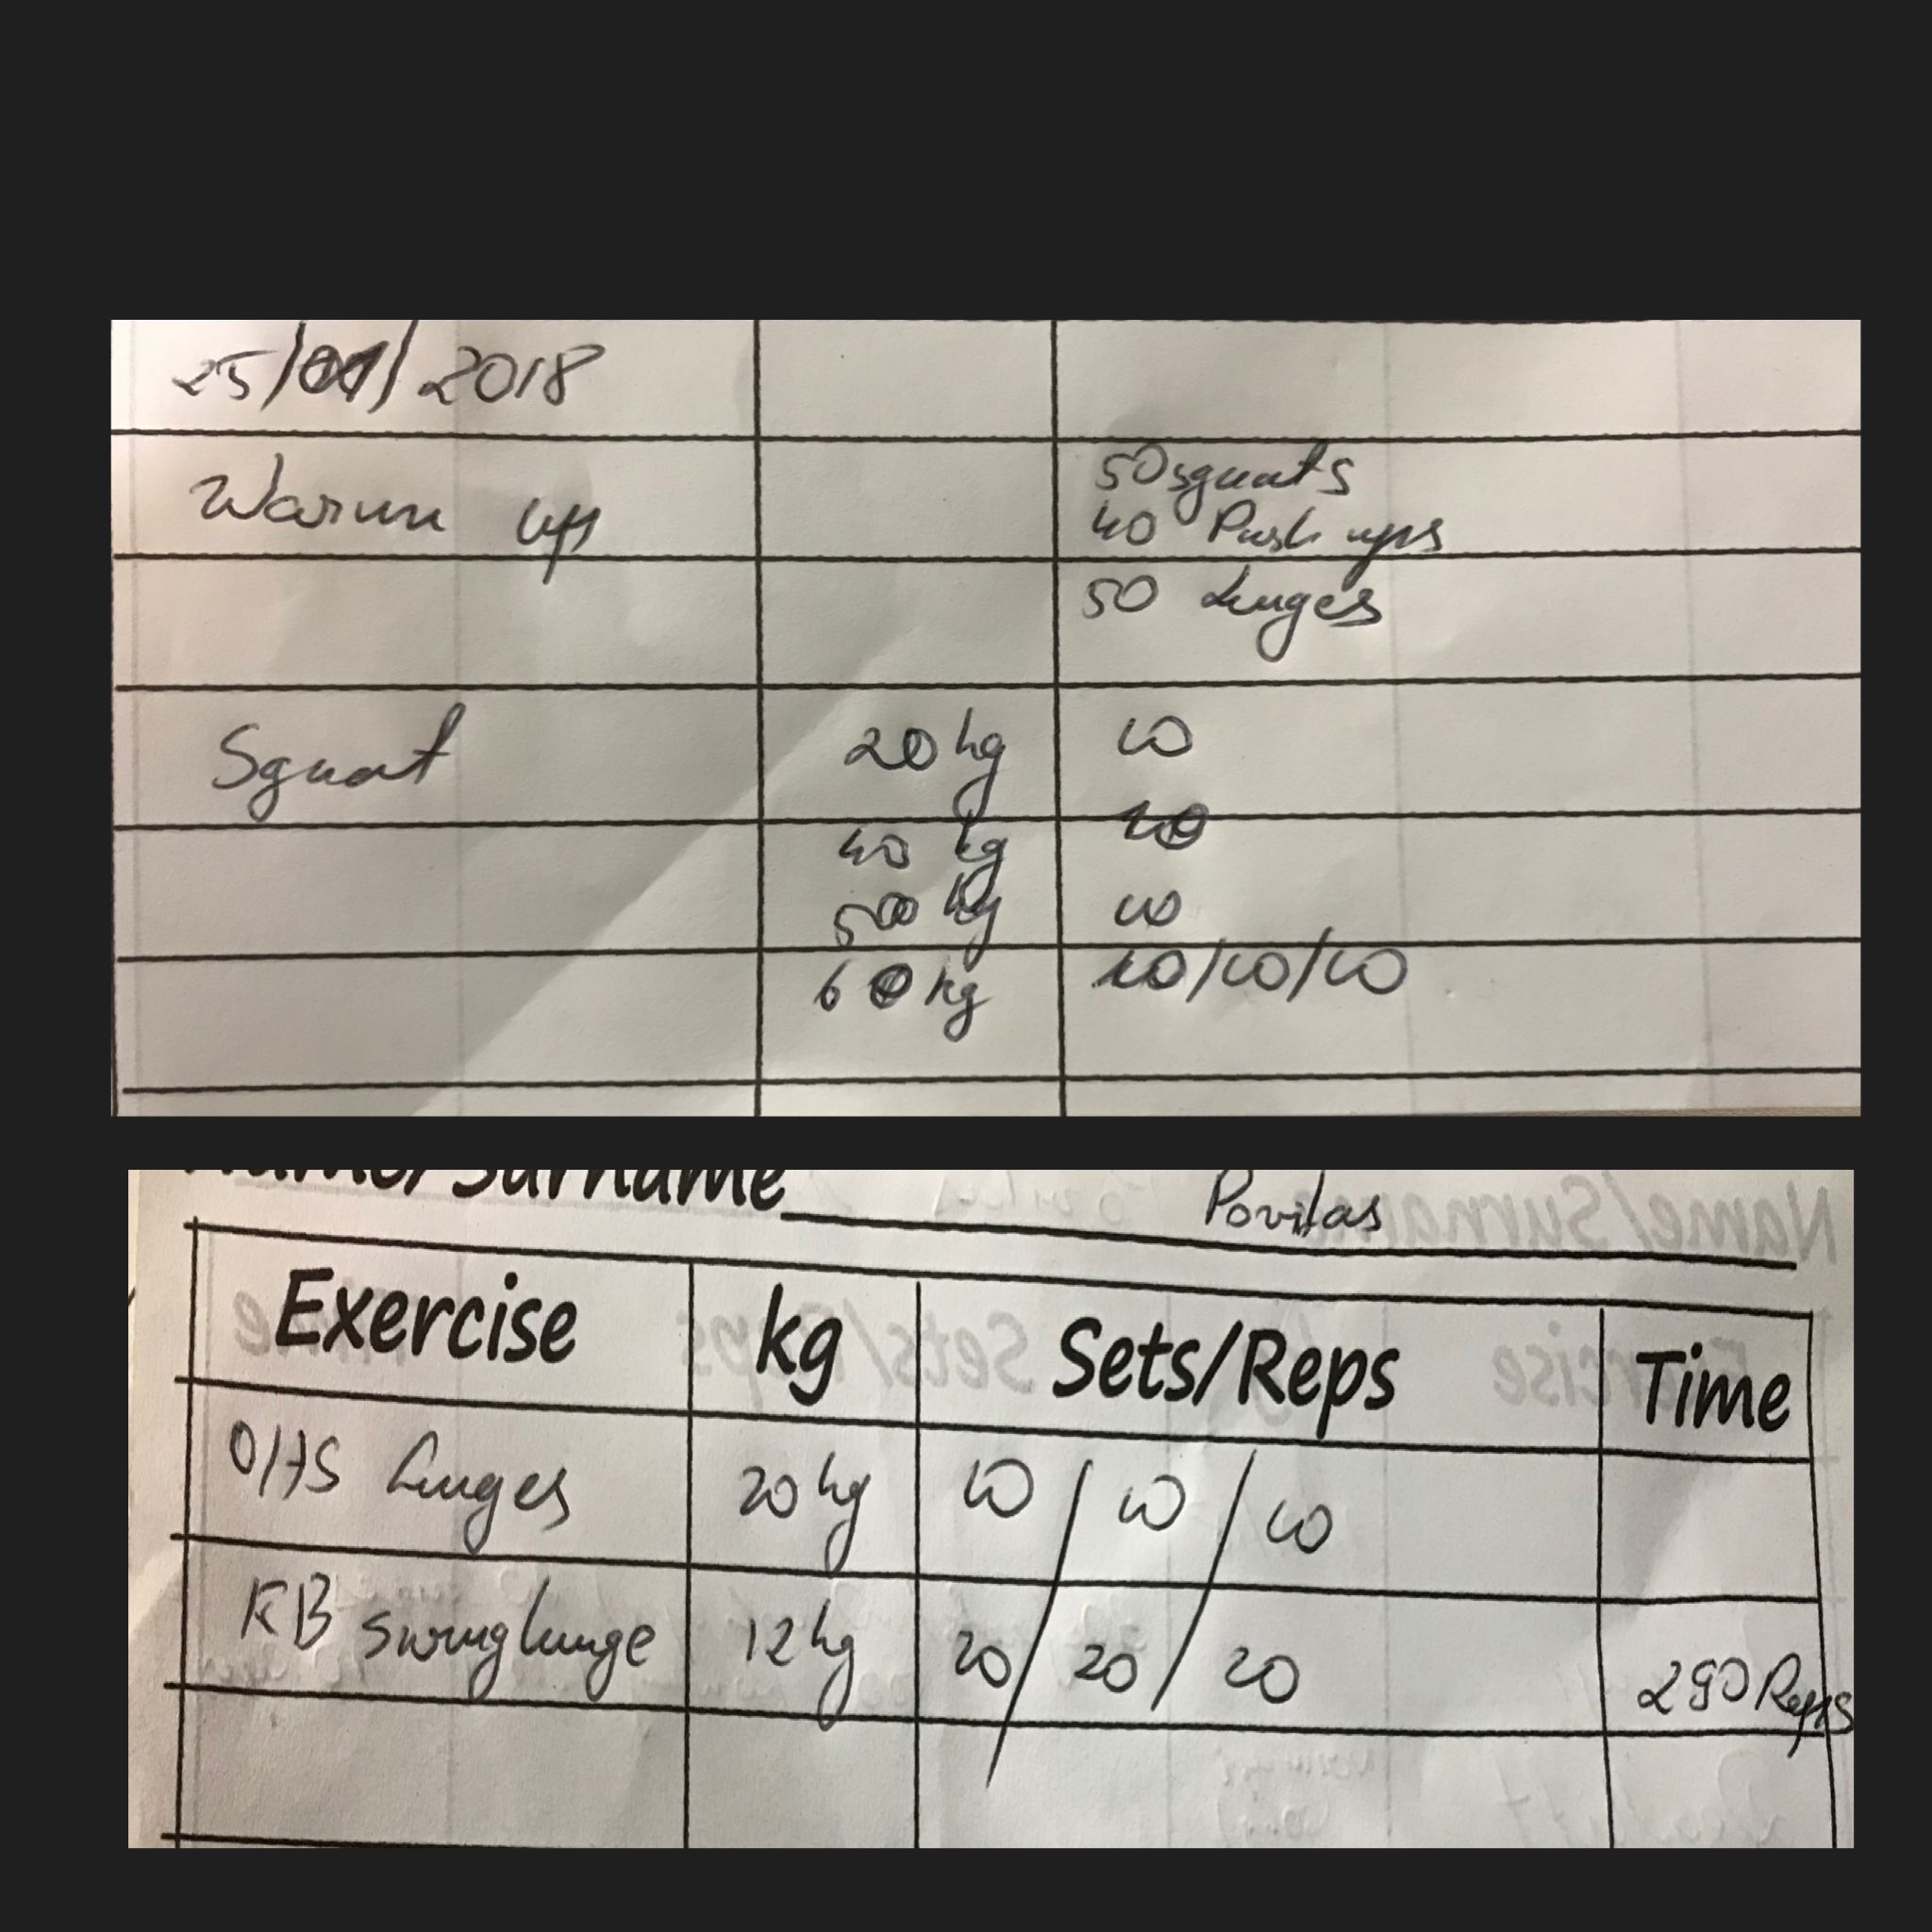 25/01/2018
Warm up
50 squats
40 Push ups
50 Lunges
Squat 20 kg 10
40 kg 10
50 kg 10
60 kg 10/10/10
Name/Surname Povilas
Exercise kg Sets/Reps Time
O/HS Lunges 20 kg 10 / 10 / 10
KB swing lunge 12 kg 20 / 20 / 20 290 Reps